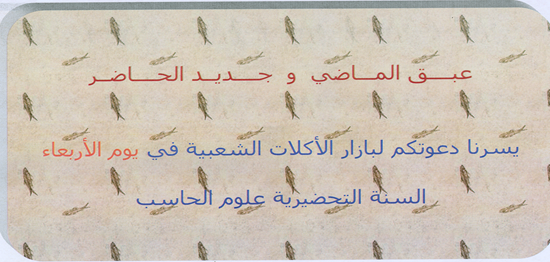 عبـــق المــاضي و جــديــد الحــاضــر
يسرنا دعوتكم لبازار الأكلات الشعبية في يوم الأربعاء
السنة التحضيرية علوم الحاسب